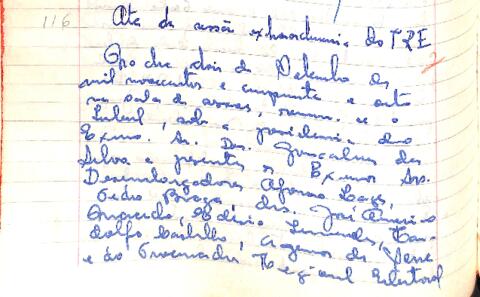 116
Ata da sessão extraordinaria do TRE
Ao dia dois de Dezembro de
mil novecentos e cinquenta e oito
na sala de sessões, reuniu-se o
Tribunal, sob a presidencia do
Exmo. Sr. Des. Gonçalves da
Silva e presentes os Exmos Srs.
Desembargadores Afonso Lages,
Pedro Braga, drs. José Americo
Macedo, Edésio Fernandes, Can-
dolfo Castilho, Cicero de
e do Procurador Regional Eleitoral